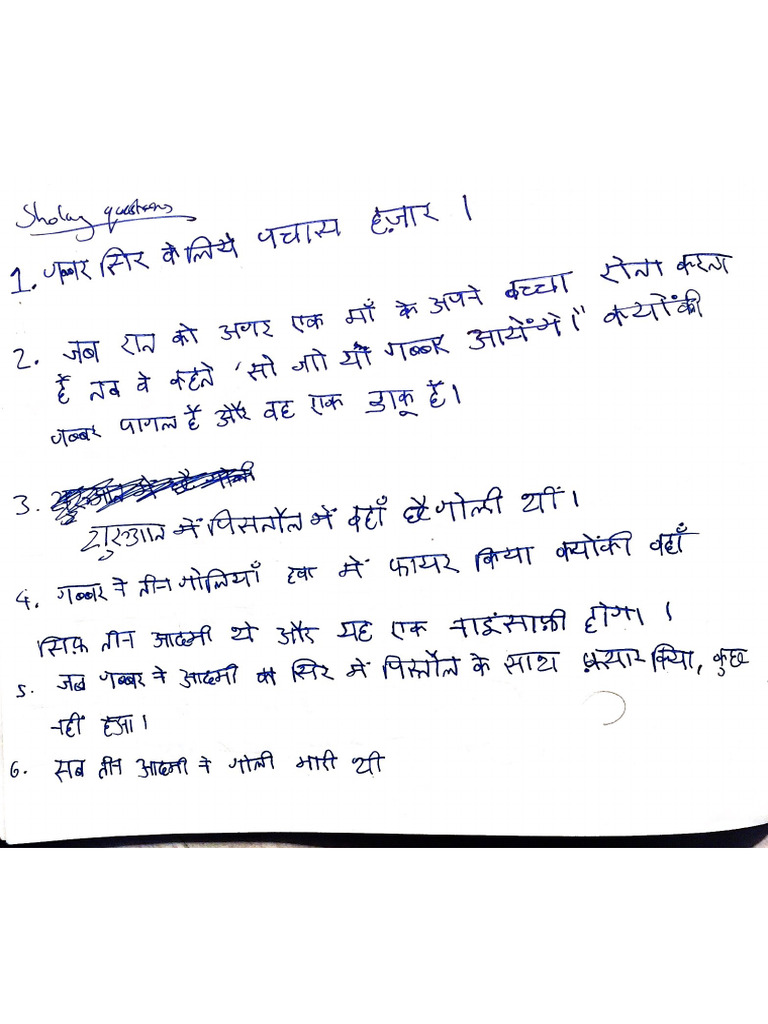 Sholay questions
1. गब्बर सिर के लिये पचास हज़ार ।
2. जब रात को अगर एक माँ के अपने बच्चा रोना करता
हैं तब वे कहते 'सो जाो गब्बर आयेंगे।" क्योंकी
गब्बर पागल हैं और वह एक डाकू हैं।
3.
शुरुआत में पिस्तौल में वहाँ छै गोली थीं।
4. गब्बर ने तीन गोलियाँ हवा में फायर किया क्योंकी वहाँ
सिर्फ़ तीन आदमी थे और यह एक नाइंसाफ़ी होगा ।
5. जब गब्बर ने आदमी का सिर में पिस्तौल के साथ फ़यार किया, कुछ
नहीं हुआ।
6. सब तीन आदमी ने गोली मारी थी